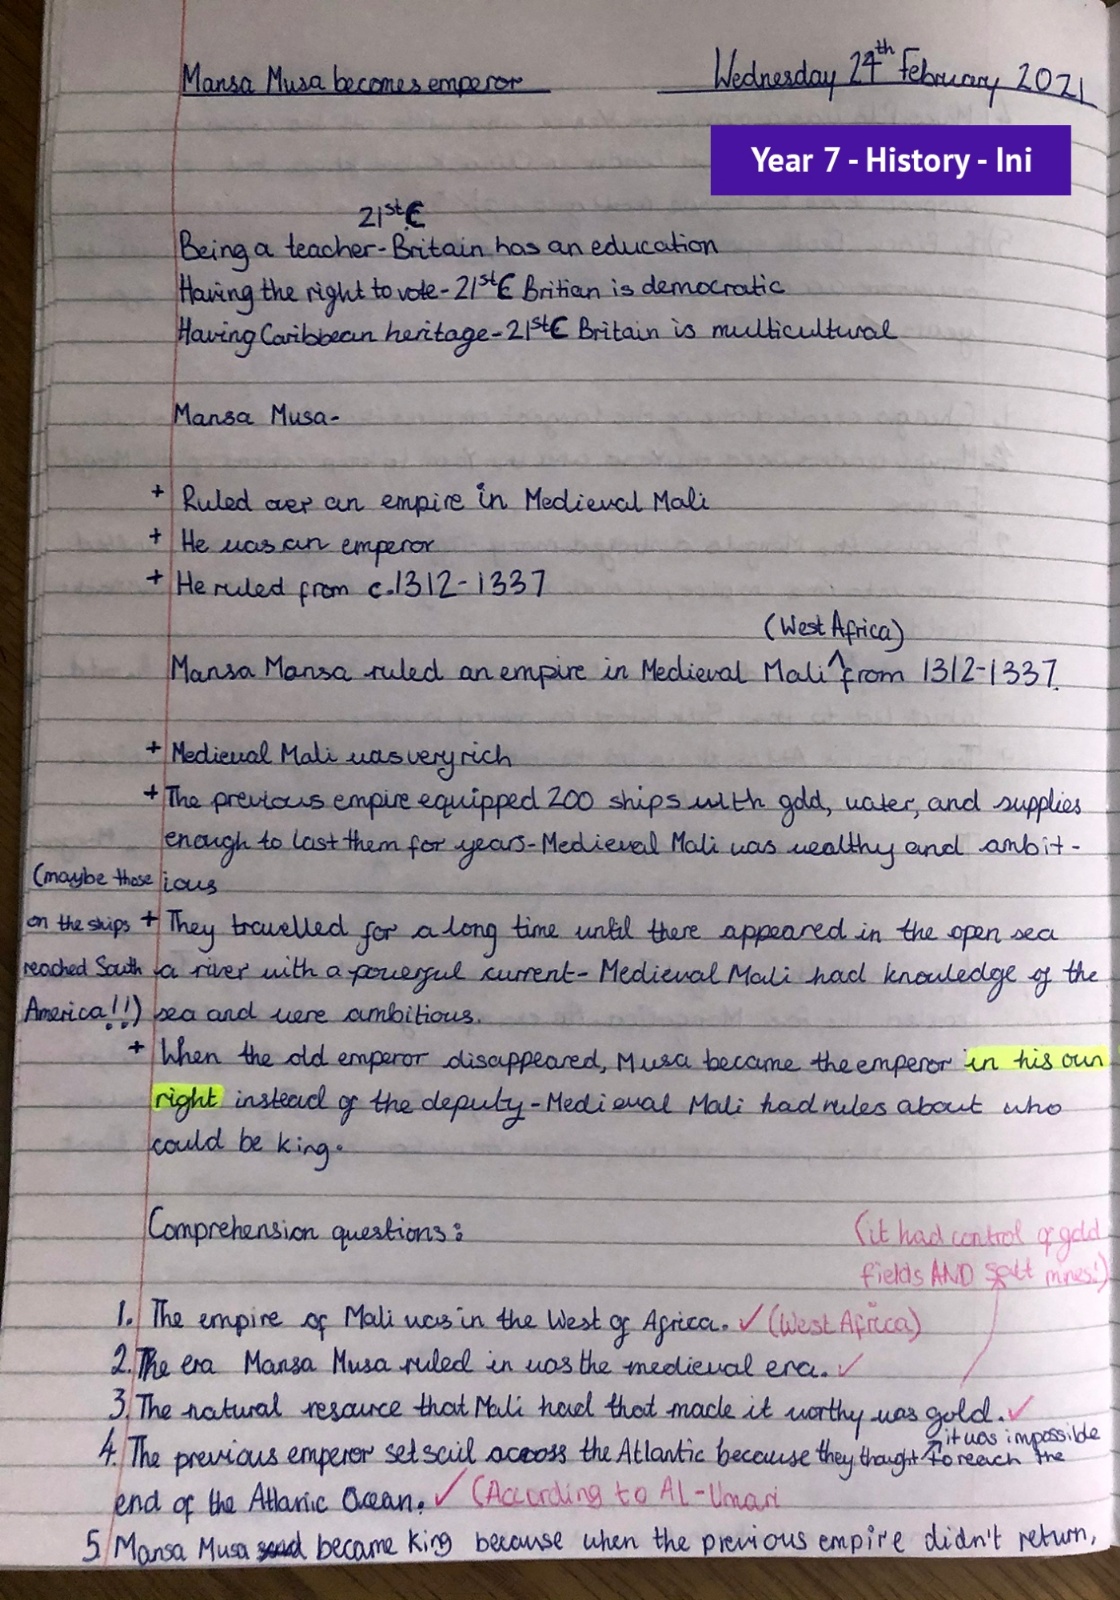 Mansa Musa becomes emperor
Wednesday 24th February 2021
Year 7 - History - Ini
21stC
Being a teacher - Britain has an education
Having the right to vote - 21stC Britian is democratic
Having Caribbean heritage - 21stC Britain is multicultural
Mansa Musa -
+ Ruled over an empire in Medieval Mali
+ He was an emperor
+ He ruled from c.1312-1337
(West Africa)
Mansa Mansa ruled an empire in Medieval Mali ^ from 1312-1337.
+ Medieval Mali was very rich
+ The previous empire equipped 200 ships with gold, water, and supplies
enough to last them for years - Medieval Mali was wealthy and ambit-
(maybe those ious
on the ships + They travelled for a long time until there appeared in the open sea
reached South a river with a powerful current - Medieval Mali had knowledge of the
America!!) sea and were ambitious.
+ When the old emperor disappeared, Musa became the emperor in his own
right instead of the deputy - Medieval Mali had rules about who
could be king.
Comprehension questions:
(it had control of gold
fields AND salt mines!)
1. The empire of Mali was in the West of Africa. ✓ (West Africa)
2. The era Mansa Musa ruled in was the medieval era. ✓
3. The natural resource that Mali had that made it worthy was gold. ✓
it was impossible
4. The previous emperor set sail across the Atlantic because they thought ^ to reach the
end of the Atlanic Ocean. ✓ (According to AL-Umari
5. Mansa Musa became King because when the previous empire didn't return,